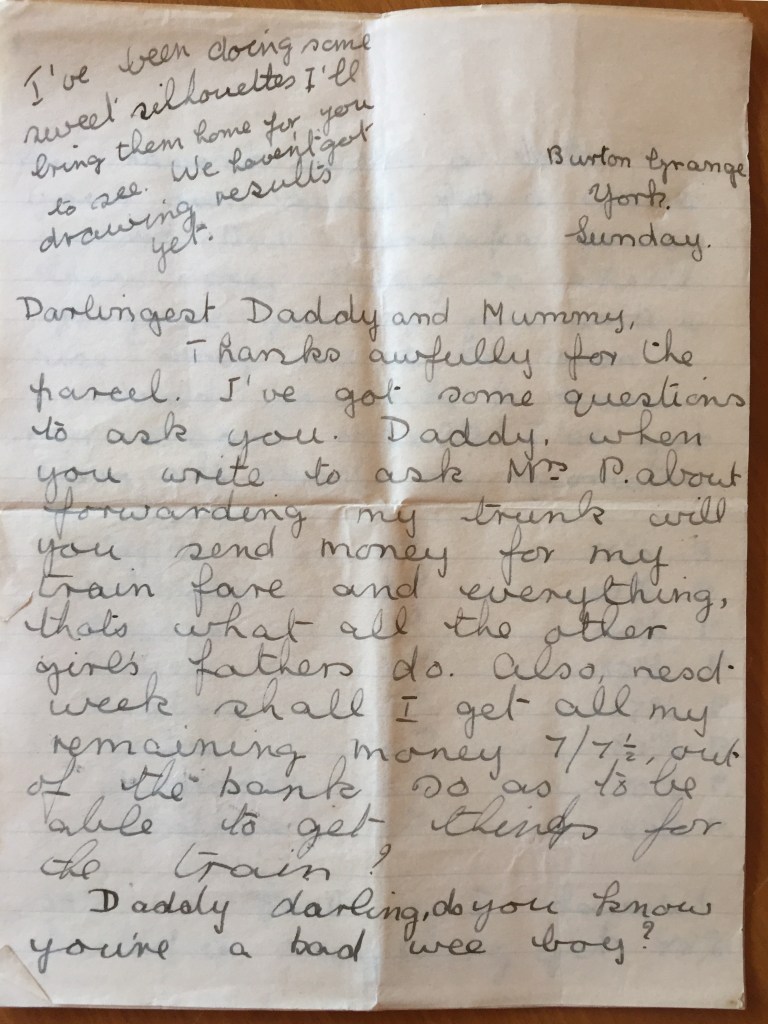 I've been doing some
sweet silhouettes I'll
bring them home for you
to see. We haven't got
drawing results
yet.
Burton Grange
York.
Sunday.
Darlingest Daddy and Mummy,
Thanks awfully for the
parcel. I've got some questions
to ask you. Daddy, when
you write to ask Mrs P. about
forwarding my trunk will
you send money for my
train fare and everything,
thats what all the other
girls fathers do. Also, next
week shall I get all my
remaining money 7/7½, out
of the bank so as to be
able to get things for
the train?
Daddy darling, do you know
you're a bad wee boy?